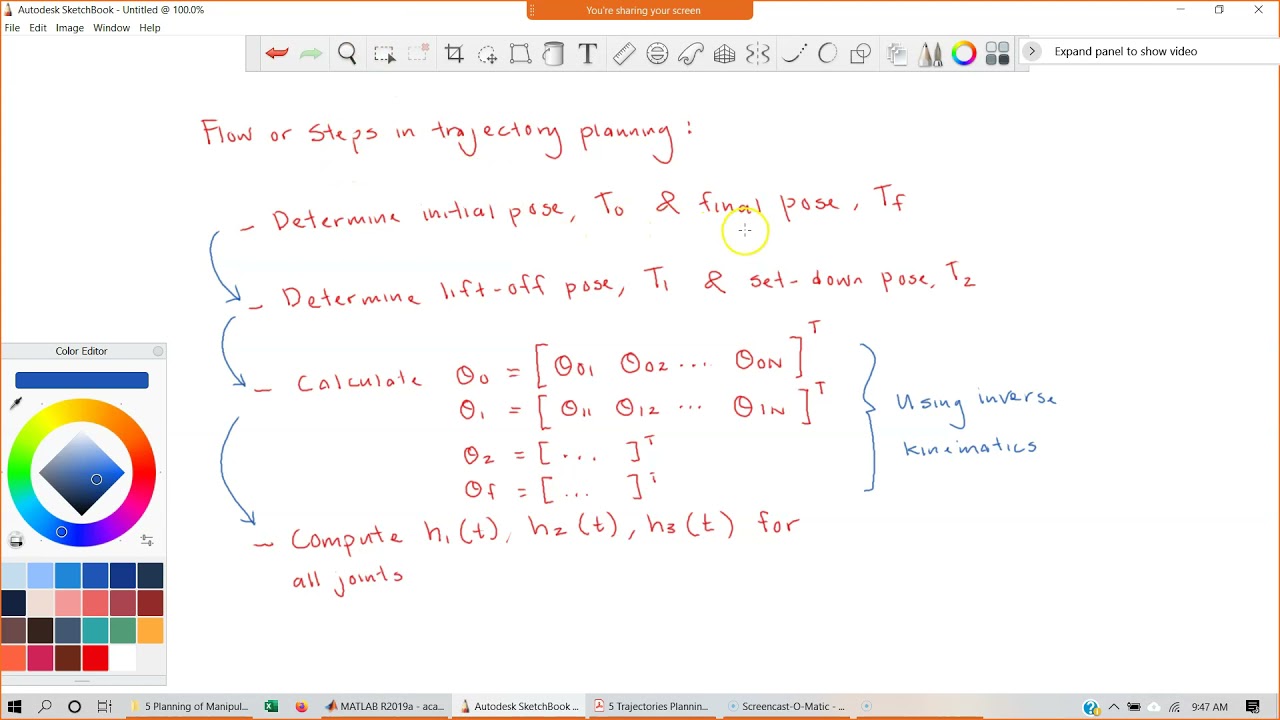 Autodesk SketchBook - Untitled @ 100.0%
You're sharing your screen
File Edit Image Window Help
T
Expand panel to show video
Flow or Steps in trajectory planning :
- Determine initial pose, T0 & final pose, Tf
- Determine lift-off pose, T1 & set-down pose, T2
- Calculate Θ0 = [Θ01 Θ02 ... Θ0N]^T
Θ1 = [Θ11 Θ12 ... Θ1N]^T
Θ2 = [... ]^T
Θf = [... ]^T
Using inverse
kinematics
- Compute h1(t), h2(t), h3(t) for
all joints
Color Editor
5 Planning of Manipul...
MATLAB R2019a - aca...
Autodesk SketchBook...
5 Trajectories Plannin...
Screencast-O-Matic - ...
9:47 AM